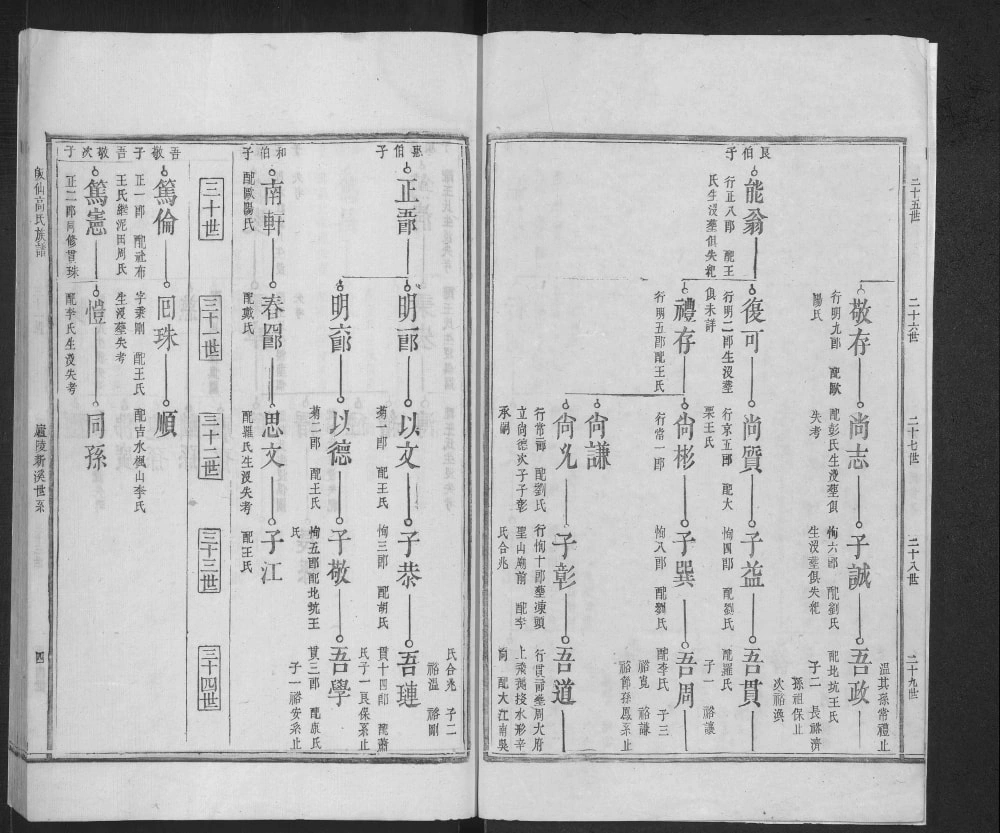 二十五世
二十六世
二十七世
二十八世
二十九世
良伯子
能翁
行正八郎 配王
氏生没塟俱失紀
敬存
行明九郎 配歐
陽氏
尚志
配彭氏生没塟俱
失考
子誠
恂六郎 配劉氏
生没塟俱失紀
吾政
配地坑王氏
子二 長裕濟
次裕渙
溫其孫常禮止
孫祖保止
復可
行明二郎生没塟
俱未詳
尚質
行京五郎 配大
栗王氏
子益
恂四郎 配劉氏
吾貫
配羅氏
子一 裕讓
禮存
行明五郎配王氏
尚彬
行常一郎
子巽
恂八郎 配劉氏
吾周
配李氏 子三
裕寬 裕謙
裕節孫鳳系止
尚謙
尚允
行常二郎 配劉氏
立尚德次子子彰
承嗣
子彰
行恂十郎塟凍頭
聖山廟前 配李
氏合兆
吾道
上飛鵝投水形辛
向 配大江南吳
氏合兆 子二
裕溫 裕剛
惠伯子
正郡
明郡
以文
菊一郎 配王氏
子恭
恂三郎 配胡氏
吾璉
貫十四郎 配蕭
氏子一良保系止
以德
菊二郎 配王氏
子敬
恂五郎配地坑王
氏
吾學
貫三郎 配康氏
子一裕安系止
和伯子
南軒
配歐陽氏
春郡
配戴氏
思文
配羅氏生没失考
子江
配王氏
三十世
三十一世
三十二世
三十三世
三十四世
吾敬子
篤倫
正一郎 配社布
王氏繼泥田周氏
回珠
字秉剛 配王氏
生没塟失考
順
配吉水楓山李氏
吾敬次子
篤憲
正二郎同修貫珠
愷
配李氏生没失考
同孫
高氏族譜
廬陵新溪世系
四